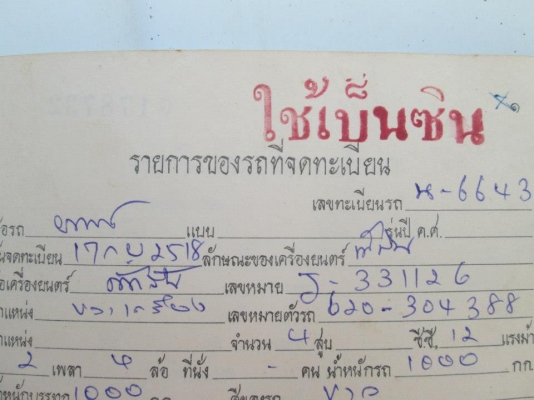 ใช้เบ็นซิน
รายการของรถที่จดทะเบียน
เลขทะเบียนรถ น-6643
อรถ แบบ รุ่นปี ค.ศ.
นจดทะเบียน 17 ก.ย 2518 ลักษณะของเครื่องยนต์
อเครื่องยนต์ เลขหมาย J-331126
ำแหน่ง เลขหมายตัวรถ 620-304388
ำแหน่ง จำนวน 4 สูบ ซีซี. 12 แรงม้า
2 เพลา 4 ล้อ ที่นั่ง - คน น้ำหนักรถ 1000 กก.
น้ำหนักบรรทุก 1000 กก. สีของรถ